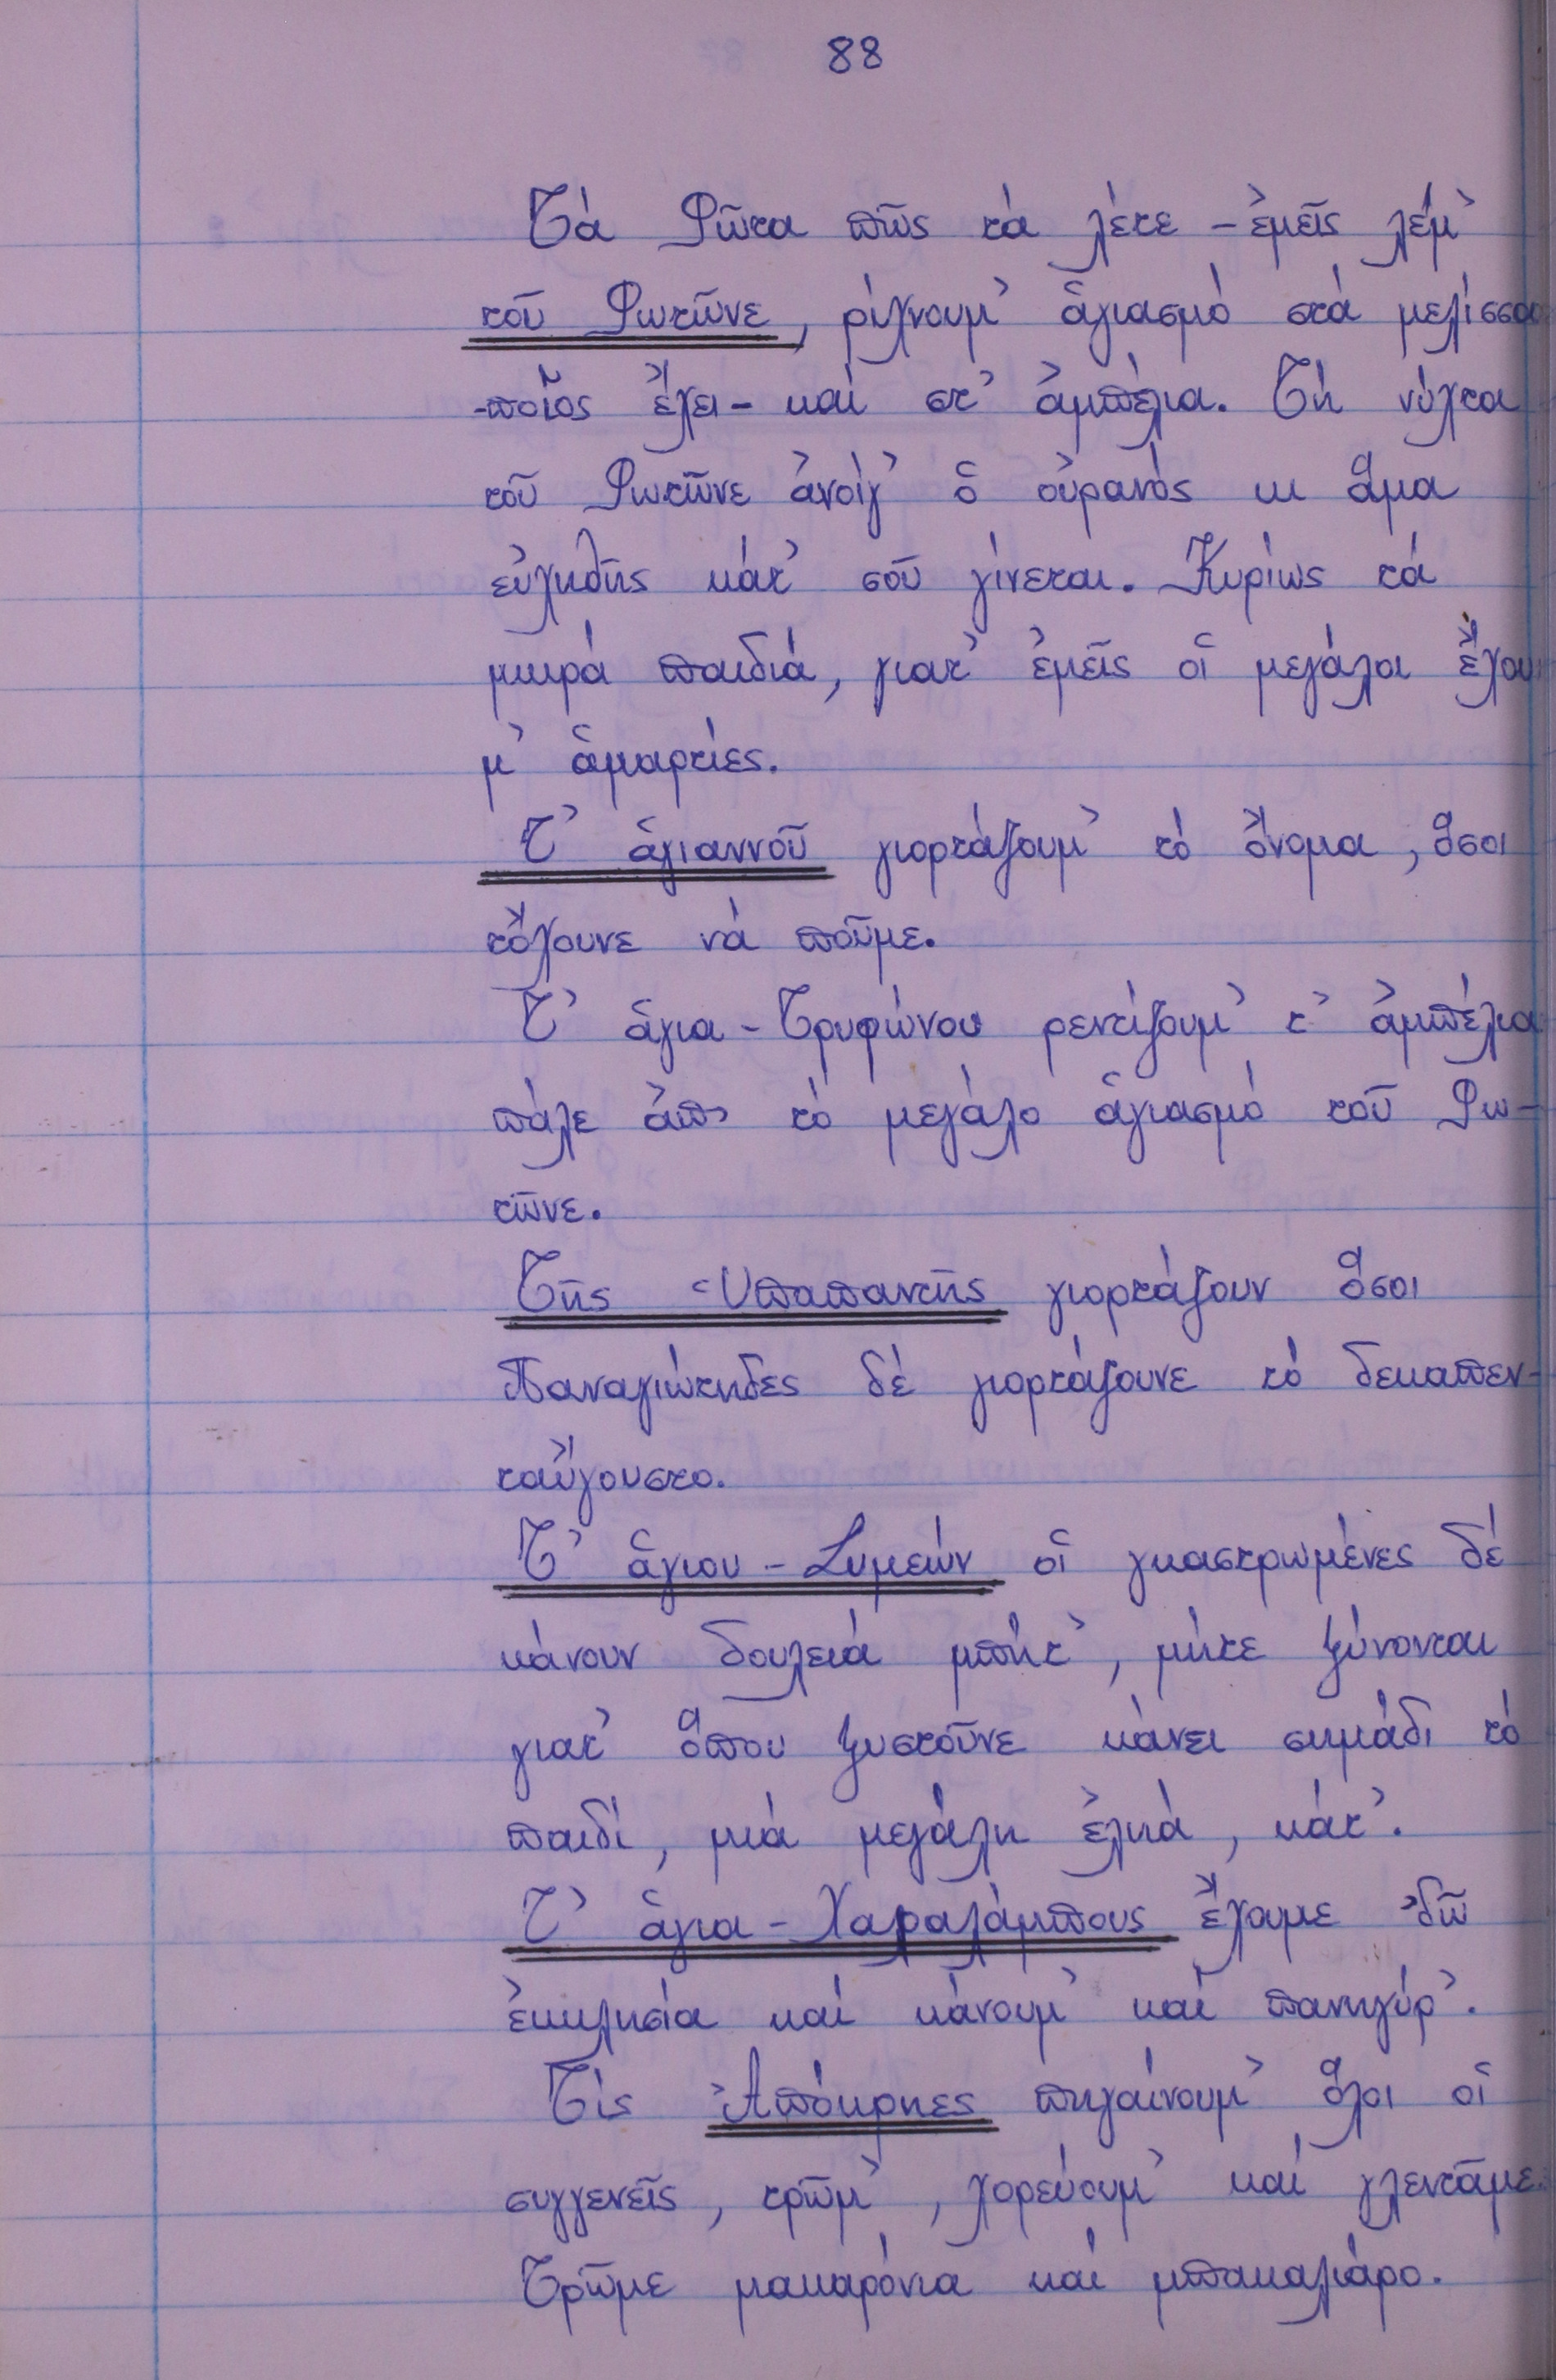 88
Τὰ Φῶτα πῶς τὰ λέτε - ἐμεῖς λέμ᾽
τοῦ Φωτῶνε, ρίχνουμ᾽ ἁγιασμό στά μελίσσα
-ποῖος ἔχει - καί στ᾽ ἀμπέλια. Τή νύχτα
τοῦ Φωτῶνε ἀνοίγ᾽ ὁ οὐρανός κι ἅμα
εὐχηθῆς κάτ᾽ σοῦ γίνεται. Κυρίως τά
μικρά παιδιά, γιατ᾽ ἐμεῖς οἱ μεγάλοι ἔχου
μ᾽ ἁμαρτίες.
Τ᾽ ἁγιαννοῦ γιορτάζουμ᾽ τό ὄνομα, ὅσοι
τὄχουνε νά ποῦμε.
Τ᾽ ἁγια-Τρυφώνου ρεντίζουμ᾽ τ᾽ ἀμπέλια
πάλε ἀπ᾽ τό μεγάλο ἁγιασμό τοῦ Φω-
τῶνε.
Τῆς Ὑπαπαντῆς γιορτάζουν ὅσοι
Παναγιώτηδες δέ γιορτάζουνε τό δεκαπεν-
ταὔγουστο.
Τ᾽ ἁγιου-Συμεών οἱ γκαστρωμένες δέ
κάνουν δουλειά μπήτ᾽, μήτε ξύνονται
γιατ᾽ ὅπου ξυστοῦνε κάνει σημάδι τό
παιδί, μιά μεγάλη ἐλιά, κάτ᾽.
Τ᾽ ἁγια-Χαραλάμπους ἔχουμε ᾽δῶ
ἐκκλησία καί κάνουμ᾽ καί πανηγύρ᾽.
Τίς Ἀπόκρηες πηγαίνουμ᾽ ὅλοι οἱ
συγγενεῖς, τρῶμ᾽, χορεύουμ᾽ καί γλεντᾶμε.
Τρῶμε μακαρόνια καί μπακαλιάρο.